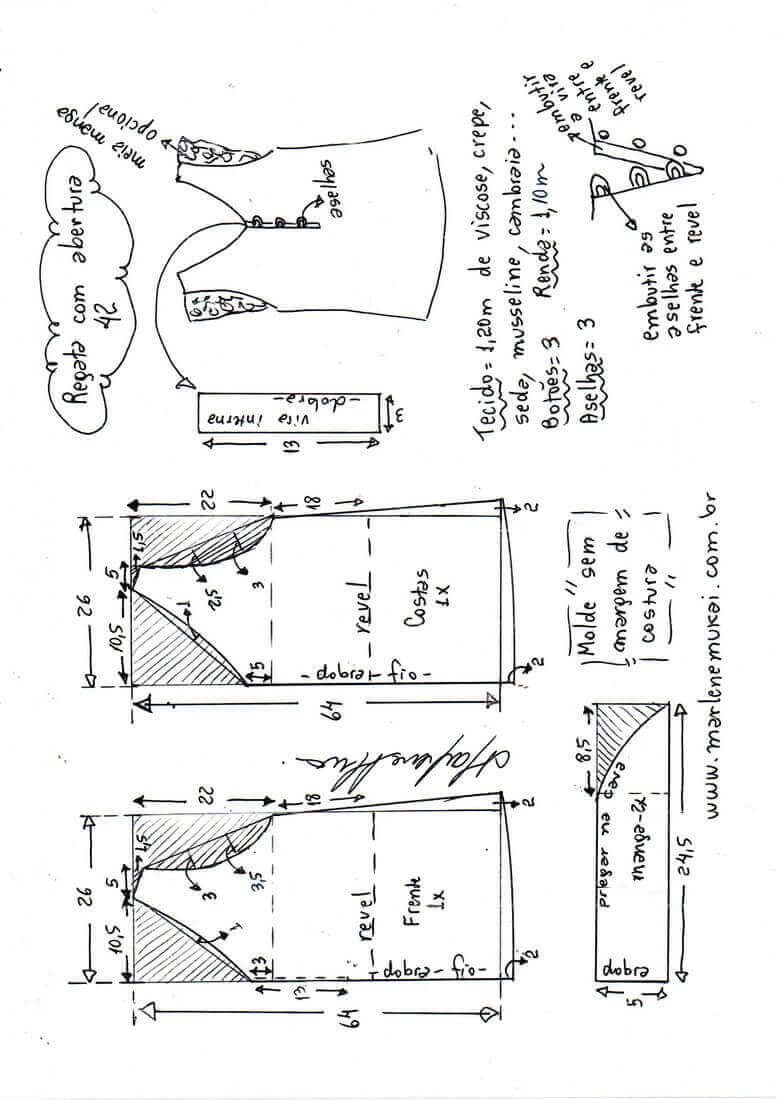 Regata com abertura
42
meia manga
opcional
aselhas
vira interna
-dobra-
13
3
Tecido = 1,20m de viscose, crepe,
seda, musseline, cambraia...
Botões = 3 Renda = 1,10m
Aselhas = 3
embutir
a vira
entre
frente e
revel
embutir as
aselhas entre
frente e revel
26
10,5
5
1,5
22
18
1
2,5
3
5
revel
Costas
1x
-fio-
dobra-
64
2
2
26
10,5
5
1,5
22
18
1
3
3,5
3
13
revel
Frente
1x
-fio-
dobra-
64
2
2
"Molde sem
margem de
costura"
8,5
pregar na cava
manga-2x
dobra
5
24,5
www.marlenemukai.com.br